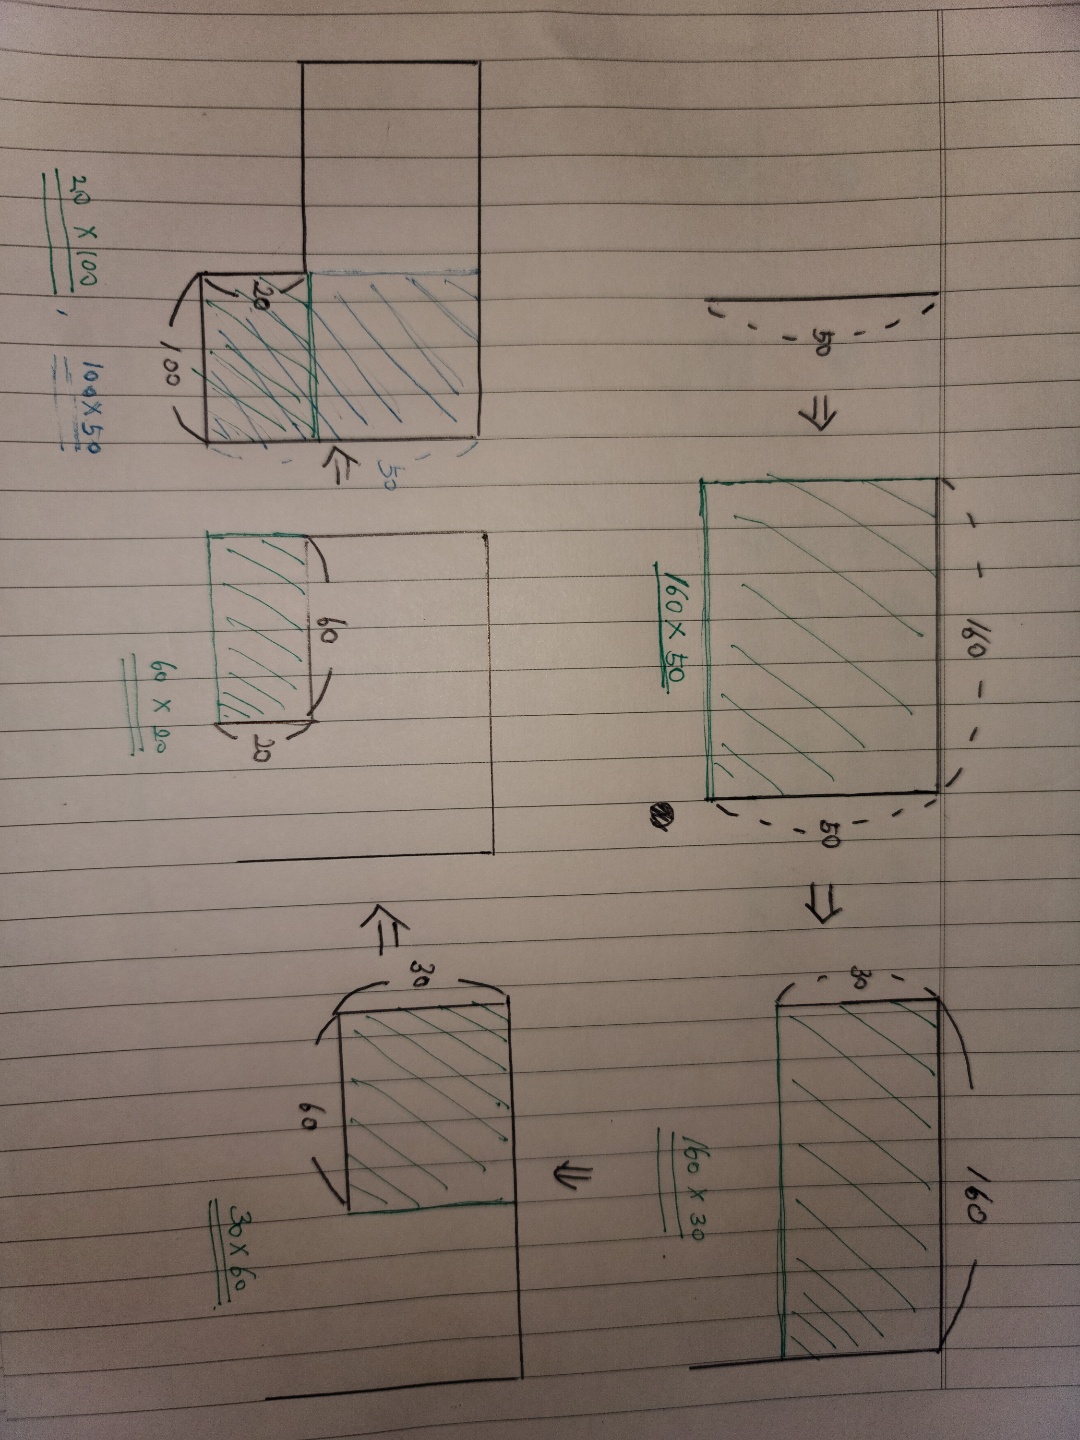 50
⇒
160
50
160 X 50
⇒
160
30
160 X 30
⇓
30
60
30 X 60
⇐
60
20
60 X 20
⇐
50
20
100
20 X 100 , 100 X 50